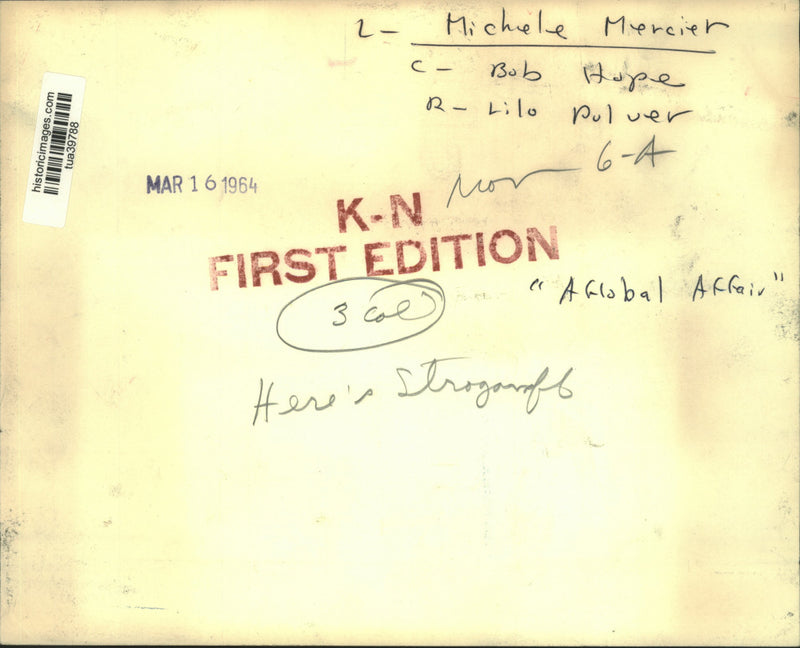 L- Michele Mercier
C- Bob Hope
R- Lilo Pulver
historicimages.com
tua39788
MAR 16 1964
Mon 6-A
K-N
FIRST EDITION
3 col
"A Global Affair"
Here's Stroganoff